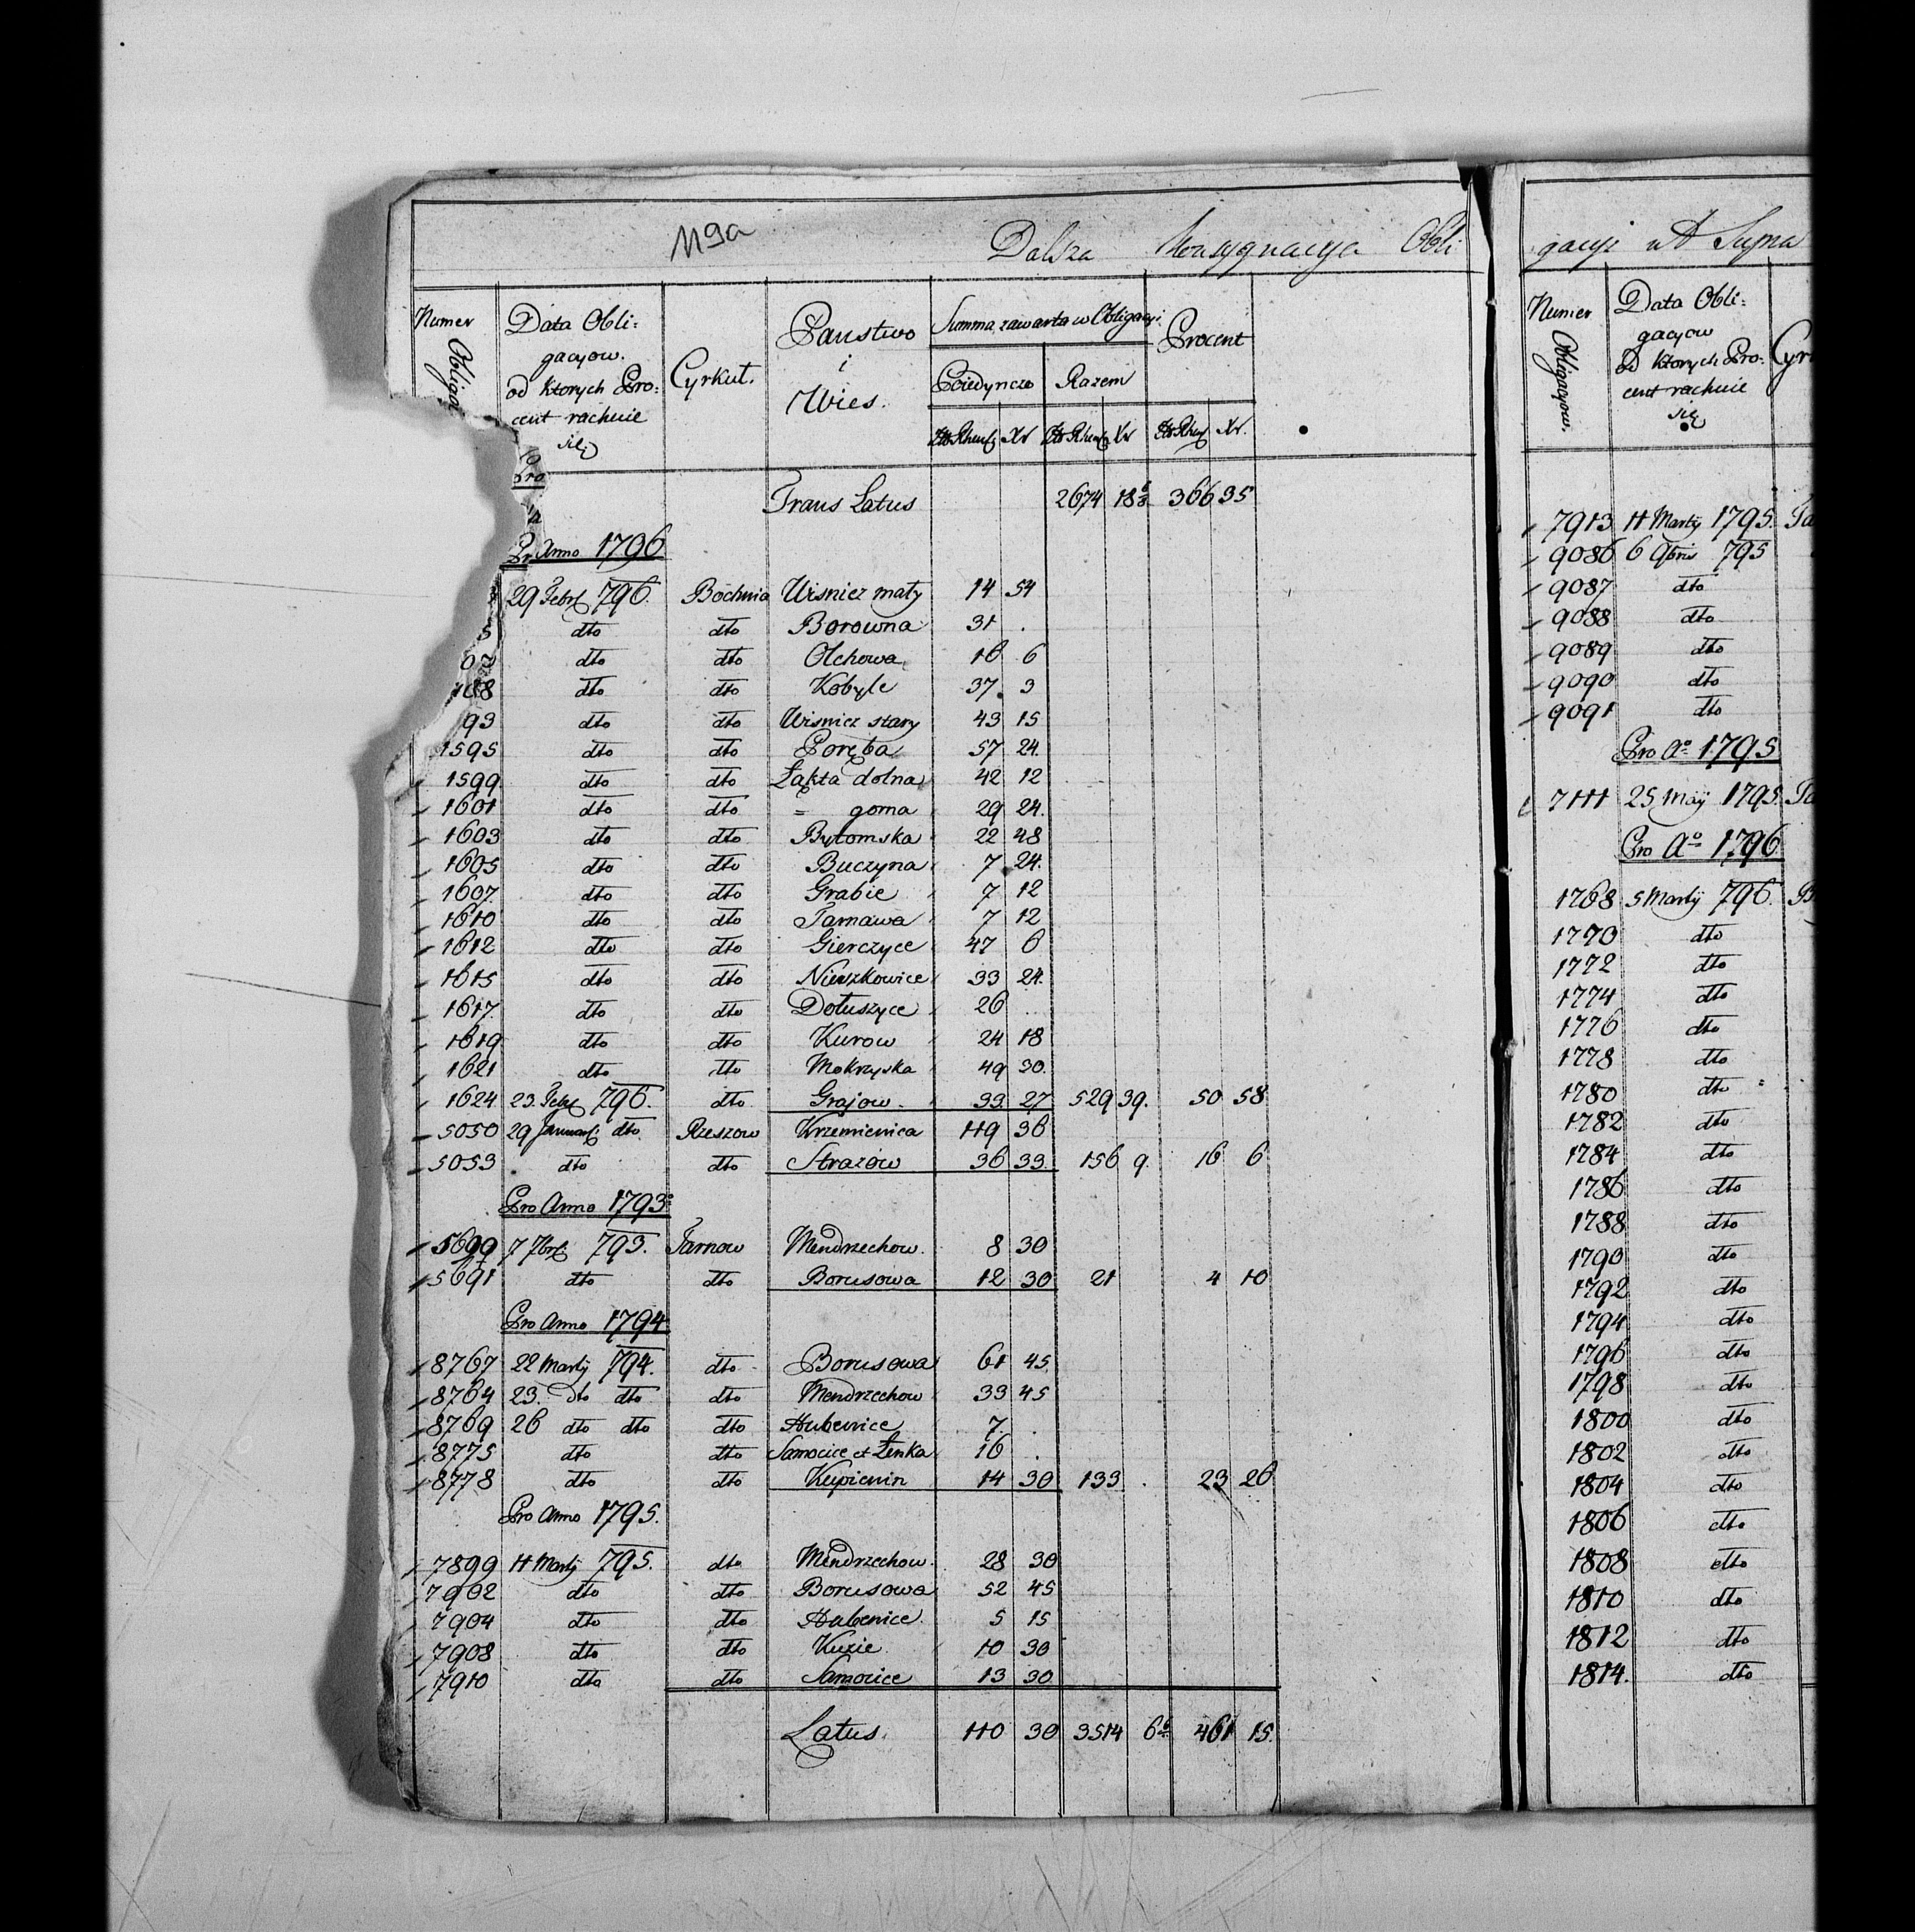 119a
Dalsza Konsygnacya Obli
Numer Obligac
Data Obli=
gacyow.
od ktorych Pro=
cent rachuie
się
Cyrkuł.
Panstwo
i
Wies.
Summa zawarta w Obligacyi
Poiedynczo Razem
Procent
Xr Xr Xr.
Pro
Trans Latus 2674 18 366 35
Pr Anno 1796
29 Febr 796. Bochnia Wisnicz mały 14 54
5 dto dto Borowna 31 .
dto dto Olchowa 16 6
188 dto dto Kobyle 37. 3
93 dto dto Wisnicz stary 43 15
1595 dto dto Poręba 57 24.
1599 dto dto Łąkta dolna 42 12
1601 dto dto = gorna 29 24.
1603 dto dto Bytomska 22 48
1605 dto dto Buczyna 7 24.
1607. dto dto Grabie 7 12
1610 dto dto Tarnawa 7 12
1612 dto dto Gierczyce 47 6
1615 dto dto Nieszkowice 33 24.
1617. dto dto Dołuszyce 26 .
1619 dto dto Kurow 24 18
1621 dto dto Mokrzyska 49 30.
1624 23. Febr 796. dto Grajow. 33. 27 529 39. 50 58.
5050 29 Januar dto. Rzeszow Krzemienica 119 36
5053 dto dto Strazow 36 33. 156 9. 16 6
Pro Anno 1793
5699 7 7br 793. Tarnow Mendrzechow. 8 30
5691 dto dto Borusowa 12 30 21 4 10
Pro Anno 1794
8767 22 Martÿ 794. dto Borusowa 61 45.
8764 23. dto dto dto Mendrzechow 33 45
8769 26 dto dto dto Hubenice 7. .
8775 dto dto Samocice et Łenka 16 .
8778 dto dto Kupienin 14 30 133 . 23 26
Pro Anno 1795.
7899 11 Martÿ 795. dto Mendrzechow. 28 30
7902 dto dto Borusowa 52 45
7904 dto dto Hubenice. 5 15
7908 dto dto Kuzie. 10 30
7910 dto dto Samocice 13 30
Latus. 110 30 3514 6 461 15.
gacyi Suma
Numer Obligacyow.
Data Obli=
gacyow
od ktorych Pro=
cent rachuie
się
Cyr
7913 11 Martÿ 1795. Ta
9086 6 9bris 795
9087 dto
9088 dto
9089 dto
9090 dto
9091 dto
Pro Ao 1795
7111 25 Maÿ 1795. Ta
Pro Ao 1796
1768 5 Martÿ 796. B
1770 dto
1772 dto
1774 dto
1776 dto
1778 dto
1780 dto
1782 dto
1784 dto
1786 dto
1788 dto
1790 dto
1792 dto
1794 dto
1796 dto
1798 dto
1800 dto
1802 dto
1804 dto
1806 dto
1808 dto
1810 dto
1812 dto
1814. dto